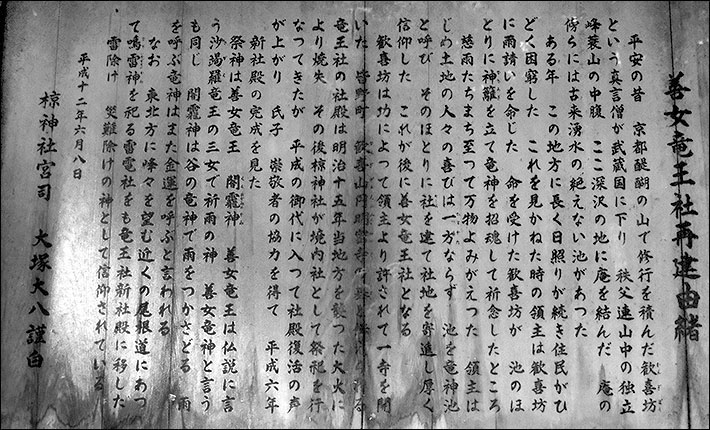 善女竜王社再建由緒
平安の昔 京都醍醐の山で修行を積んだ歓喜坊
という真言僧が武蔵国に下り 秩父連山中の独立
峰蓑山の中腹 ここ深沢の地に庵を結んだ 庵の
傍らには古来湧水の絶えない池があつた
ある年 この地方に長く日照りが続き住民がひ
どく困窮した これを見かねた時の領主は歓喜坊
に雨請いを命じた 命を受けた歓喜坊が 池のほ
とりに神籬を立て竜神を招魂して祈念したところ
慈雨たちまち至つて万物よみがえつた 領主は
じめ土地の人々の喜びは一方ならず 池を竜神池
と呼び そのほとりに社を建て社地を寄進し厚く
信仰した これが後に善女竜王社となる
歓喜坊は功によつて領主より許されて一寺を開
いた 皆野町 歓喜山円明寺の
竜王社の社殿は明治十五年当地方を襲つた大火に
より焼失 その後椋神社が境内社として祭祀を行
なつてきたが 平成の御代に入つて社殿復活の声
が上がり 氏子 崇敬者の協力を得て 平成六年
新社殿の完成を見た
祭神は善女竜王 闇龗神 善女竜王は仏説に言
う沙竭羅竜王の三女で祈雨の神 善女竜神と言う
も同じ 闇龗神は谷の竜神で雨をつかさどる 雨
を呼ぶ竜神はまた金運を呼ぶと言われる
なお 東北方に峰々を望む近くの尾根道にあつ
て鳴雷神を祀る雷電社をも竜王社新社殿に移した
雷除け 災難除けの神として信仰されている
平成十二年六月八日
椋神社宮司 大塚大八謹白